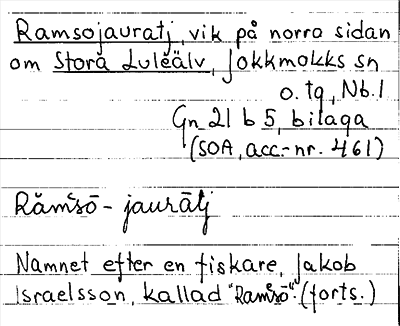 Ramsojauratj, vik på norra sidan
om Stora Luleälv, Jokkmokks sn
o. tg, Nb.l
Gn 21 b 5, bilaga
(SOA, acc.-nr. 461)
Rămsō - jaurātj
Namnet efter en fiskare, Jakob
Israelsson, kallad "Ramsō". (forts.)